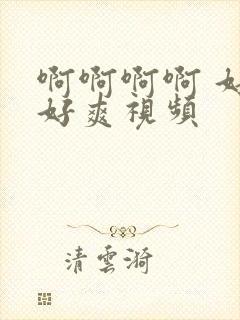 啊啊啊啊 好
好爽視頻
清雲漪